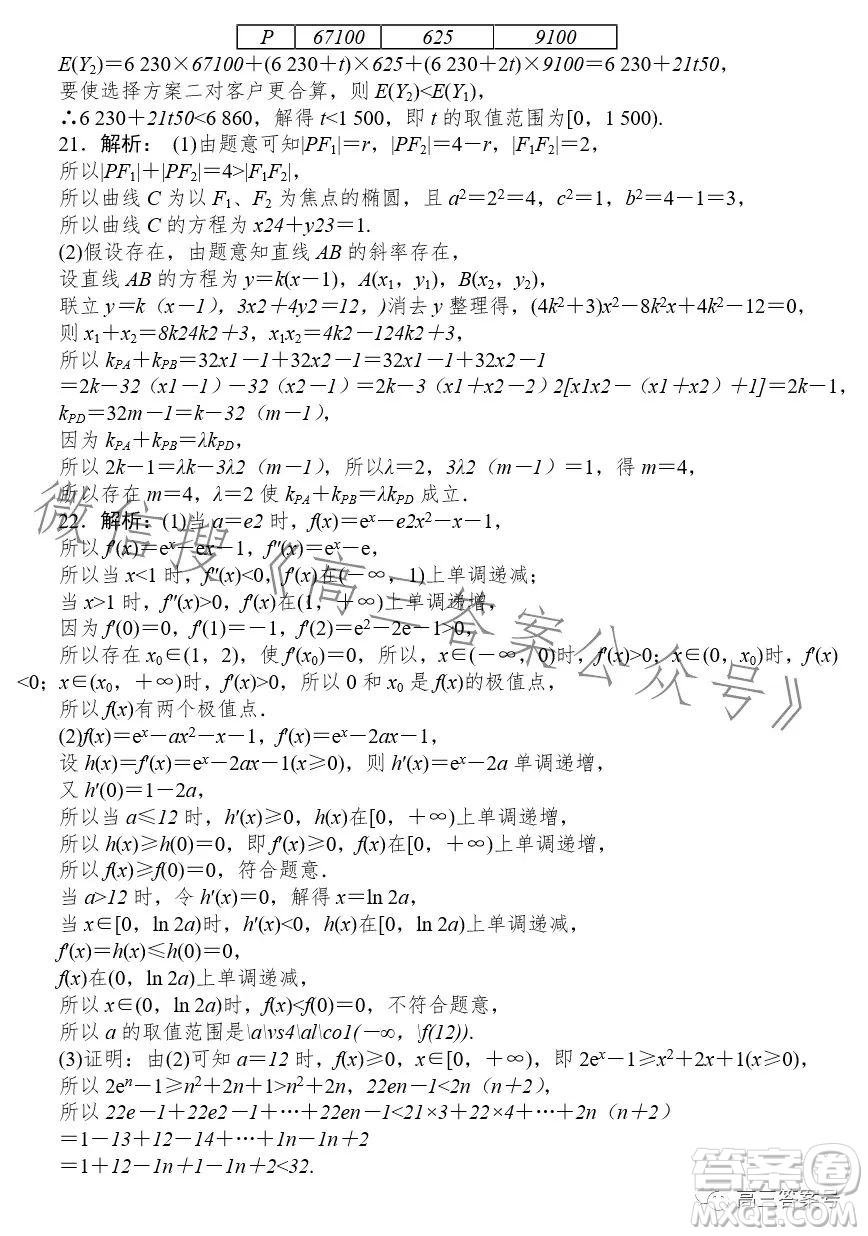 P 67100 625 9100
E(Y₂)=6 230×67100+(6 230+t)×625+(6 230+2t)×9100=6 230+21t50,
要使选择方案二对客户更合算，则 E(Y₂)<E(Y₁)，
∴6 230+21t50<6 860，解得 t<1 500，即 t 的取值范围为[0，1 500).
21．解析： (1)由题意可知|PF₁|=r，|PF₂|=4-r，|F₁F₂|=2，
所以|PF₁|+|PF₂|=4>|F₁F₂|，
所以曲线 C 为以 F₁、F₂ 为焦点的椭圆，且 a²=2²=4，c²=1，b²=4-1=3，
所以曲线 C 的方程为 x24+y23=1.
(2)假设存在，由题意知直线 AB 的斜率存在，
设直线 AB 的方程为 y=k(x-1)，A(x₁，y₁)，B(x₂，y₂)，
联立 y=k（x-1），3x2+4y2=12，)消去 y 整理得，(4k²+3)x²-8k²x+4k²-12=0，
则 x₁+x₂=8k24k2+3，x₁x₂=4k2-124k2+3，
所以 kPA+kPB=32x1-1+32x2-1=32x1-1+32x2-1
=2k-32（x1-1）-32（x2-1）=2k-3（x1+x2-2）2[x1x2-（x1+x2）+1]=2k-1，
kPD=32m-1=k-32（m-1），
因为 kPA+kPB=λkPD，
所以 2k-1=λk-3λ2（m-1），所以λ=2，3λ2（m-1）=1，得 m=4，
所以存在 m=4，λ=2 使 kPA+kPB=λkPD 成立．
22．解析：(1)当 a=e2 时，f(x)=eˣ-e2x²-x-1，
所以 f′(x)=eˣ-ex-1，f″(x)=eˣ-e，
所以当 x<1 时，f″(x)<0，f′(x)在(-∞，1)上单调递减；
当 x>1 时，f″(x)>0，f′(x)在(1，+∞)上单调递增，
因为 f′(0)=0，f′(1)=-1，f′(2)=e²-2e-1>0，
所以存在 x₀∈(1，2)，使 f′(x₀)=0，所以，x∈(-∞，0)时，f′(x)>0；x∈(0，x₀)时，f′(x)
<0；x∈(x₀，+∞)时，f′(x)>0，所以 0 和 x₀ 是 f(x)的极值点，
所以 f(x)有两个极值点．
(2)f(x)=eˣ-ax²-x-1，f′(x)=eˣ-2ax-1，
设 h(x)=f′(x)=eˣ-2ax-1(x≥0)，则 h′(x)=eˣ-2a 单调递增，
又 h′(0)=1-2a，
所以当 a≤12 时，h′(x)≥0，h(x)在[0，+∞)上单调递增，
所以 h(x)≥h(0)=0，即 f′(x)≥0，f(x)在[0，+∞)上单调递增，
所以 f(x)≥f(0)=0，符合题意．
当 a>12 时，令 h′(x)=0，解得 x=ln 2a，
当 x∈[0，ln 2a)时，h′(x)<0，h(x)在[0，ln 2a)上单调递减，
f′(x)=h(x)≤h(0)=0，
f(x)在(0，ln 2a)上单调递减，
所以 x∈(0，ln 2a)时，f(x)<f(0)=0，不符合题意，
所以 a 的取值范围是\a\vs4\al\co1(-∞，\f(12)).
(3)证明：由(2)可知 a=12 时，f(x)≥0，x∈[0，+∞)，即 2eˣ-1≥x²+2x+1(x≥0)，
所以 2eⁿ-1≥n²+2n+1>n²+2n，22en-1<2n（n+2），
所以 22e-1+22e2-1+…+22en-1<21×3+22×4+…+2n（n+2）
=1-13+12-14+…+1n-1n+2
=1+12-1n+1-1n+2<32.
微信搜《高三答案公众号》
答案圈
高三答案号
MXQE.COM